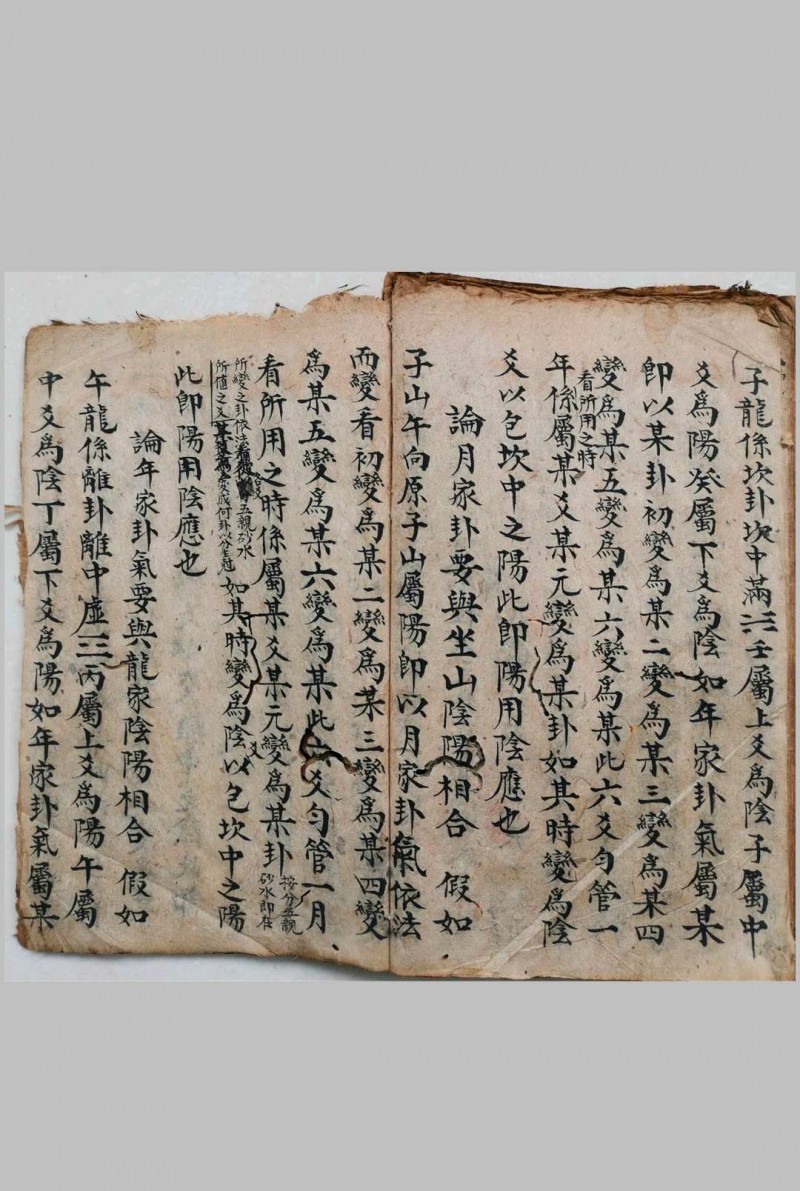 子龍係坎卦坎中滿☵壬屬上爻為陰子屬中
爻為陽癸屬下爻為陰如年家卦氣屬某
即以某卦初變為某二變為某三變為某四
變為某五變為某六變為某此六爻勻管一
看所用之時
年係屬某爻某元變為某卦如其時變為陰
爻以包坎中之陽此即陽用陰應也
論月家卦要與坐山陰陽相合 假如
子山午向原子山屬陽即以月家卦氣依法
而變看初變為某二變為某三變為某四變
為某五變為某六變為某此六爻勻管一月
看所用之時係屬某爻某元變為某卦
按分五親
砂水即在
所變之卦依法看
五親砂水
所值之爻
如其時變為陰爻以包坎中之陽
此即陽用陰應也
論年家卦氣要與龍家陰陽相合 假如
午龍係離卦離中虛☲丙屬上爻為陽午屬
中爻為陰丁屬下爻為陽如年家卦氣屬某